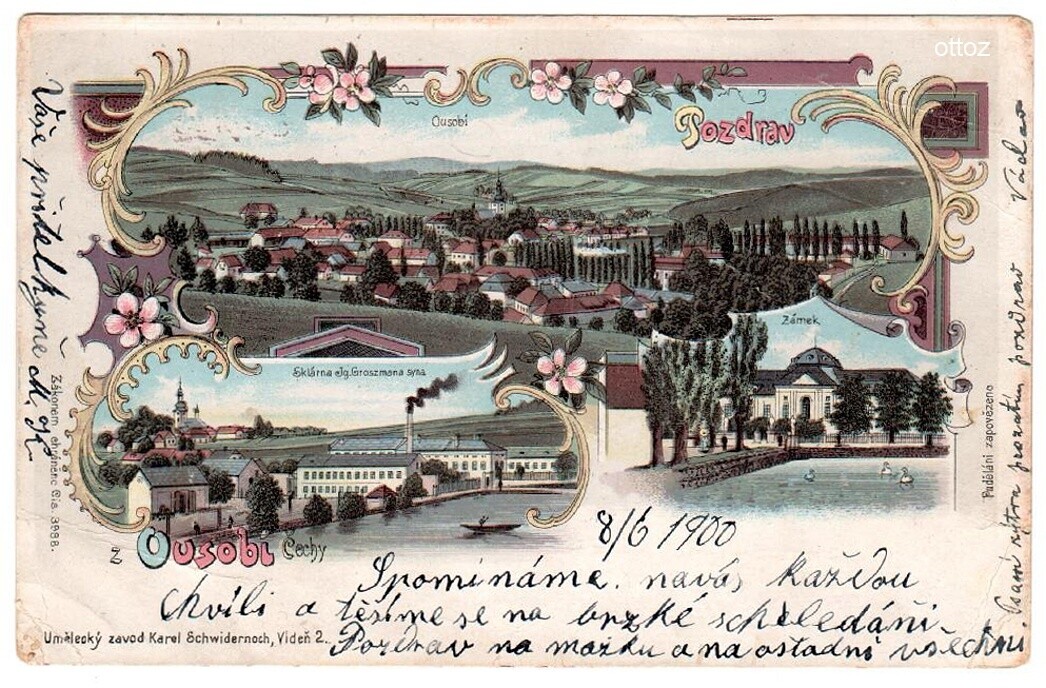 ottoz
Ousobí
Pozdrav
Zámek
Sklárna Jg. Groszmana syna
z Ousobí Čechy
8/6 1900
Spomínáme na vás každou
chvíli a těšíme se na brzké schledání.
Pozdrav na mažku a na ostadní všechni
Umělecký zavod Karel Schwidernoch, Videň 2.
Zákonem chráněno Čis. 3988.
Padělání zapovězeno
Vaše přítelkyně
pozdrav Václav